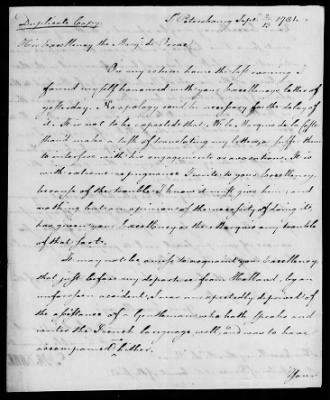 Duplicate Copy.
St. Petersbourg Sept. 2/13 1781.
His Excellency the Marq: de Verac
On my return home the last evening I
found myself honoured with your Excellency's letter of
yesterday. No apology could be necessary for the delay of
it. It is not to be expected that M. le Marquis de la Coste
shou'd make a task of translating my letters, or suffer them
to interfere with his engagements or avocations. It is
with extreme repugnance I write to your Excellency
because of the trouble I know it must give him, and
nothing but an opinion of the necessity of doing it,
has given your Excellency or the Marquis any trouble
of that sort.
It may not be amiss to acquaint your Excellency
that just before my departure from Holland, by an
unforeseen accident, I was unexpectedly deprived of
the assistance of a Gentleman who both speaks and
writes the French Language well, and was to have
accompanied me hither.
Your